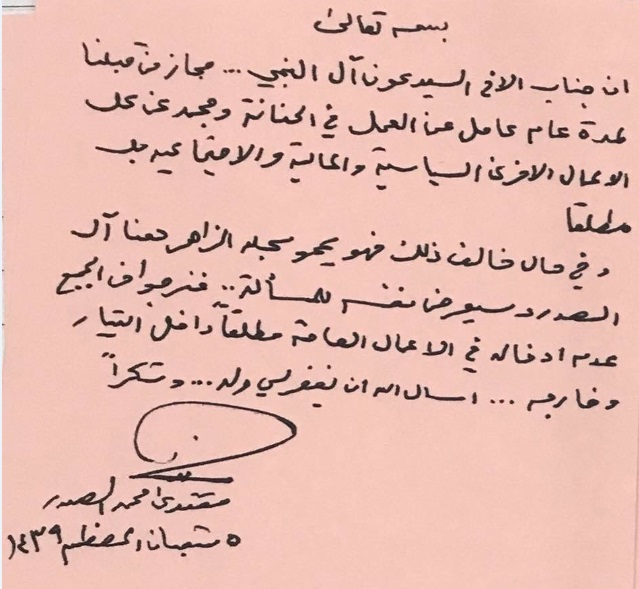 بسمه تعالى
ان جناب الاخ السيد عون آل النبي ... مجاز من قبلنا
لمدة عام كامل عن العمل في الحنانة ومجمد عن كل
الاعمال الاخرى السياسية والمالية والاجتماعية بل
مطلقا
وفي حال خالف ذلك فهو يمحو سجله الزاهر معنا آل
الصدر وسيعرض نفسه للمسألة .. فنرجو من الجميع
عدم ادخاله في الاعمال العامة مطلقاً داخل التيار
وخارجه ... اسال الله ان يغفر لي وله ... وشكراً
مقتدى محمد الصدر
٥ شعبان المعظم ١٤٣٩